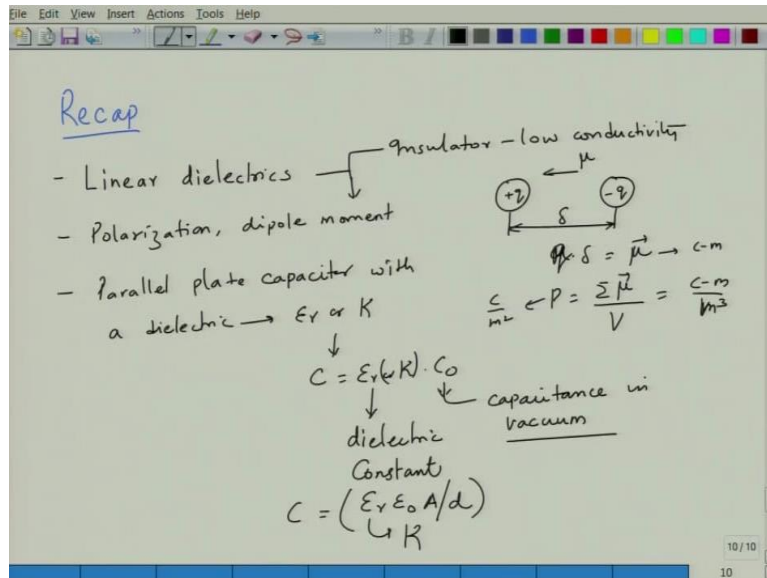 File Edit View Insert Actions Tools Help
Recap
- Linear dielectrics
Insulator - low conductivity
- Polarization, dipole moment
μ
+q -q
δ
q·δ = μ⃗ → C-m
C/m² ← P = Σμ⃗/V = C-m/m³
- Parallel plate capacitor with
a dielectric → εr or K
C = εr(or K)·C0
capacitance in
vacuum
dielectric
Constant
C = (εr ε0 A/d)
K
10/10
10